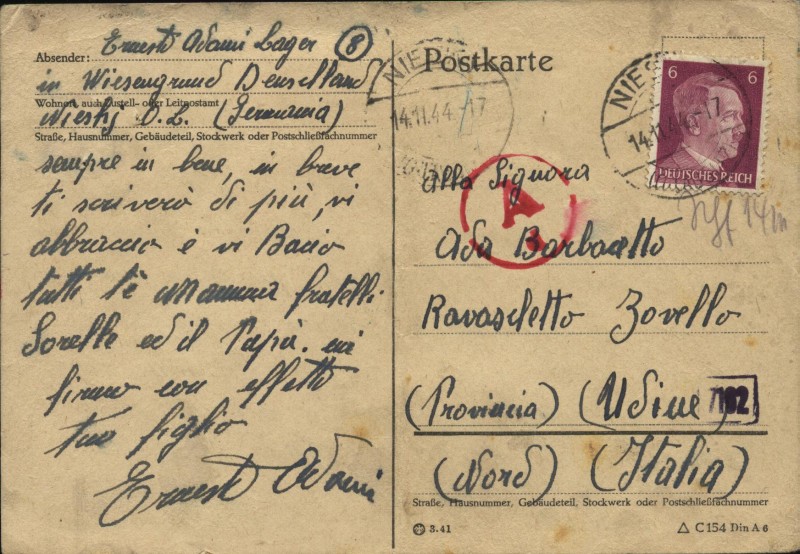 Absender: Ernest Adami Lager 8
in Wiesengrund Densclland
Wohnort, auch Zustell- oder Leitpostamt
Niesky O.L. (Germania)
Straße, Hausnummer, Gebäudeteil, Stockwerk oder Postschließfachnummer
sempre in bene, in breve
ti scriverò di più, vi
abbraccio è vi Bacio
tutti tè mamma fratelli
Sorelle ed il Papà. mi
firmo con effetto
tuo figlio
Ernest Adami
Postkarte
NIESKY
14.11.44.-17
NIESKY
14.11.44.-17
6 6
DEUTSCHES REICH
A
Alla Signora
Ada Barbacetto
Ravascletto Zovello
(Provincia) (Udine)
7102
(Nord) (Italia)
Straße, Hausnummer, Gebäudeteil, Stockwerk oder Postschließfachnummer
3.41
C 154 Din A 6